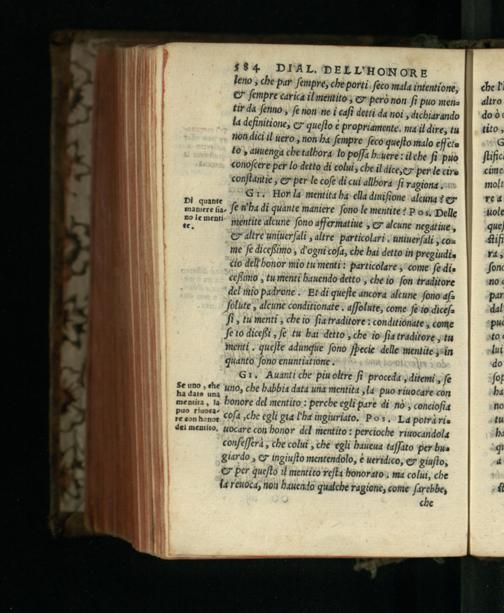 584 DIAL. DELL'HONORE
leno, che par sempre, che porti seco mala intentione,
& sempre carica il mentito, & però non si puo men-
tir da senno, se non ne i casi detti da noi, dichiarando
la definitione, & questo è propriamente. ma il dire, tu
non dici il uero, non ha sempre seco questo malo effet-
to, auuenga che talhora lo possa hauere: il che si può
conoscere per lo detto di colui, che il dice, & per le cir-
constantie, & per le cose di cui allhora si ragiona.
GI. Hor la mentita ha ella diuisione alcuna? &
se n'ha di quante maniere sono le mentite? POS. Delle
mentite alcune sono affermatiue, & alcune negatiue,
& altre uniuersali, altre particolari. uniuersali, co-
me se dicessimo, d'ogni cosa, che hai detto in pregiudi-
cio dell'honor mio tu menti: particolare, come se di-
cessimo, tu menti hauendo detto, che io son traditore
del mio padrone. Et di queste ancora alcune sono as-
solute, alcune conditionate. assolute, come se io dices-
si, tu menti, che io sia traditore: conditionate, come
se io dicessi, se tu hai detto, che io sia traditore, tu
menti. queste adunque sono specie delle mentite, in
quanto sono enuntiatione.
GI. Auanti che piu oltre si proceda, ditemi, se
uno, che habbia data una mentita, la puo riuocar con
honore del mentito: perche egli pare di nò, conciosia
cosa, che egli gia l'ha ingiuriato. POS. La potrà ri-
uocare con honor del mentito: percioche riuocandola
confesserà, che colui, che egli haueua tassato per bu-
giardo, & ingiusto mentendolo, è ueridico, & giusto,
& per questo il mentito resta honorato. ma colui, che
la reuoca, non hauendo qualche ragione, come sarebbe,
che
Di quante
maniere sia-
no le menti-
te.
Se uno, che
ha dato una
mentita, la
puo riuoca-
re con honor
del mentito.